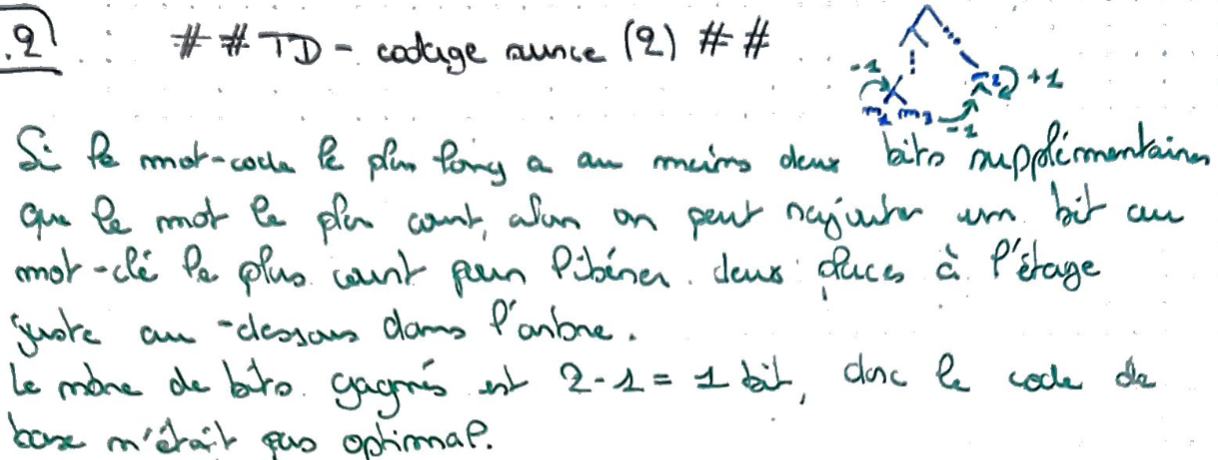 .2 # # TD - codage source (2) # #
-1 +1
m1 m3 m2
-1
Si le mot-code le plus long a au moins deux bits supplémentaires
que le mot le plus court, alors on peut rajouter un bit au
mot-clé le plus court pour libérer deux places à l'étage
juste au-dessous dans l'arbre.
Le nbre de bits gagnés est 2-1 = 1 bit, donc le code de
base n'était pas optimal.